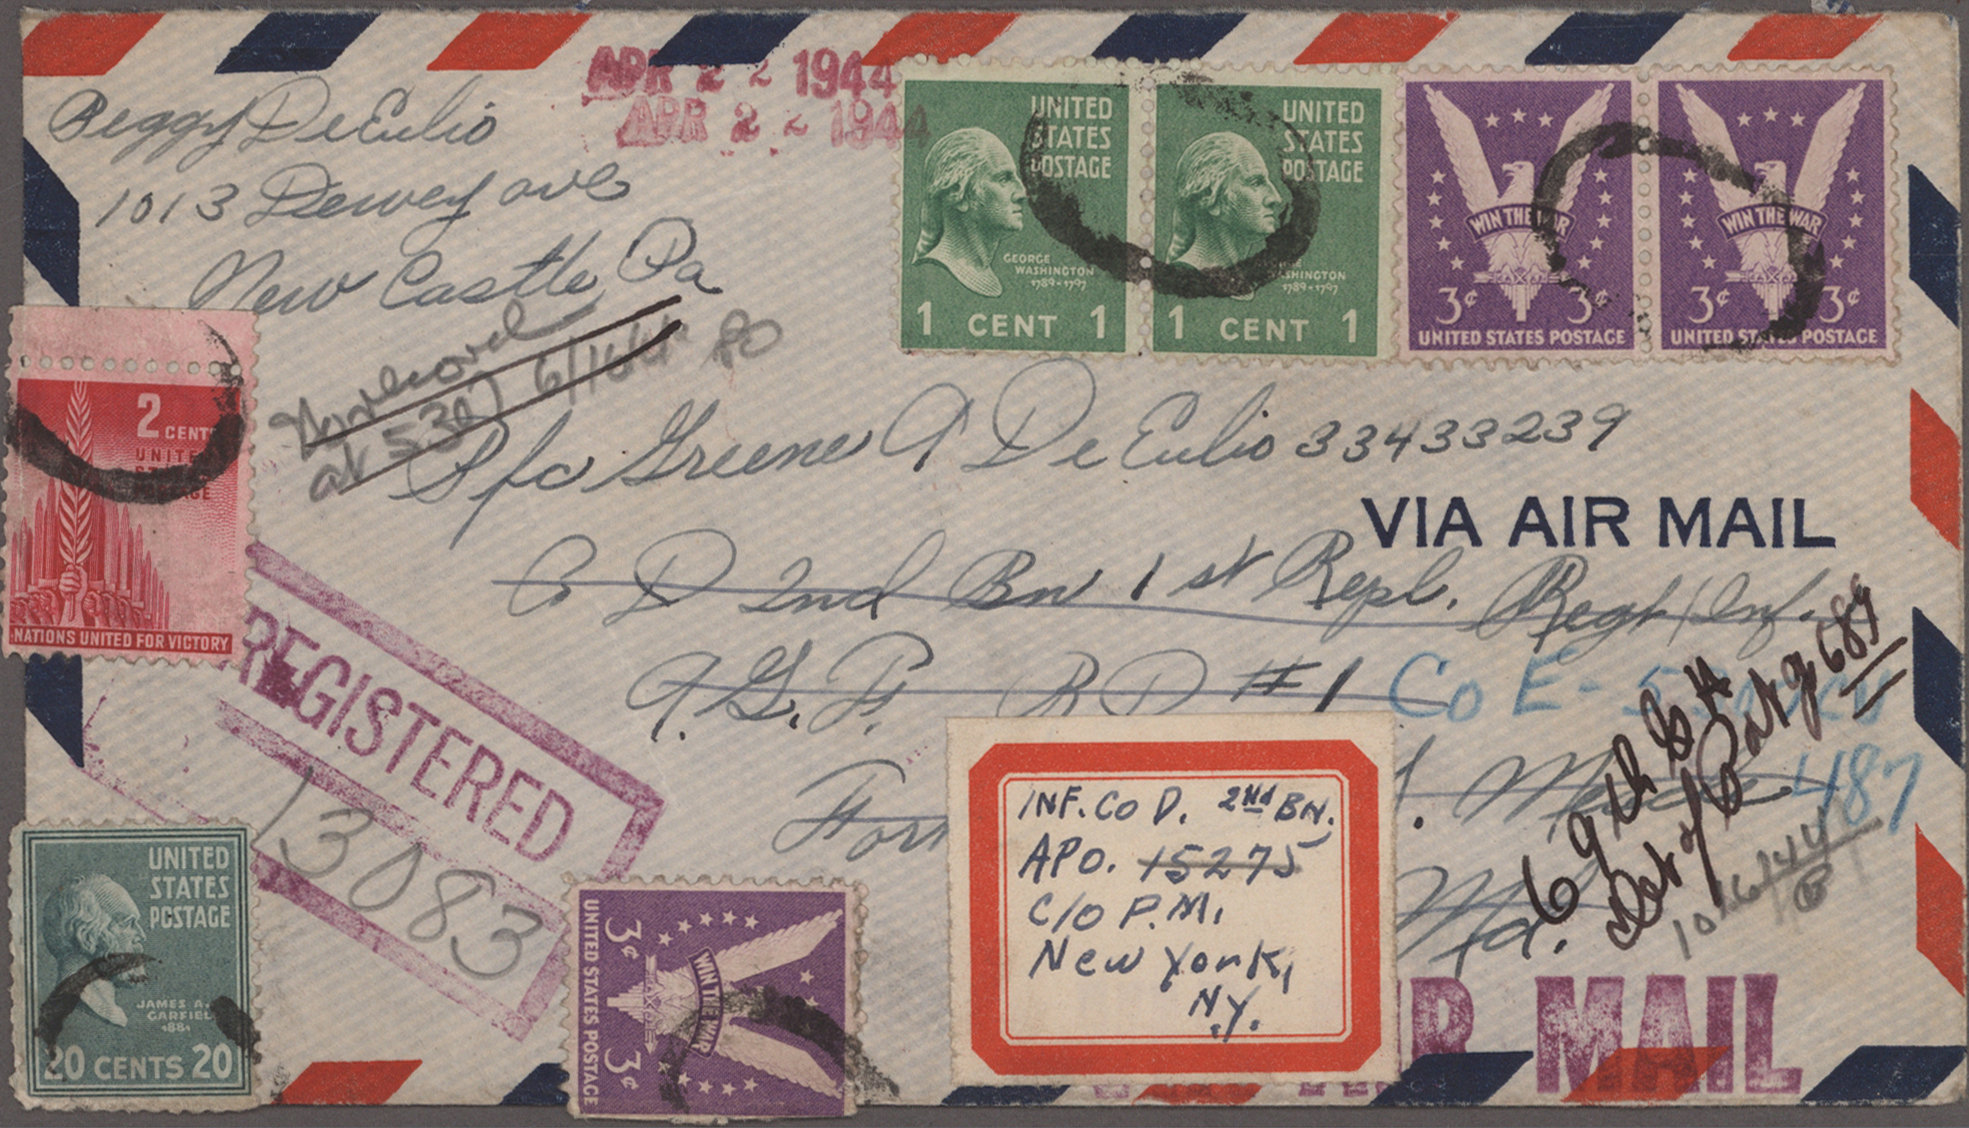 APR 2 2 1944
APR 2 2 1944
Peggy DeEulio
1013 Dewey ave
New Castle, Pa
UNITED
STATES
POSTAGE
GEORGE
WASHINGTON
1789-1797
1 CENT 1
UNITED
STATES
POSTAGE
WASHINGTON
1789-1797
1 CENT 1
WIN THE WAR
3¢ 3¢
UNITED STATES POSTAGE
WIN THE WAR
3¢ 3¢
UNITED STATES POSTAGE
at 530
80
2 CENTS
UNITED
NATIONS UNITED FOR VICTORY
Pfc Greene A DeEulio 33433239
VIA AIR MAIL
Co D 2nd Bn 1st Repl. Regt Inf.
A.G.F. RD #1
Co E -
487
Md.
REGISTERED
13083
INF. CO D. 2nd BN.
APO. 15275
C/O P.M.
New York,
N.Y.
10/16/44
UNITED
STATES
POSTAGE
JAMES A.
GARFIELD
1881
20 CENTS 20
3¢ 3¢
WIN THE WAR
UNITED STATES POSTAGE
MAIL